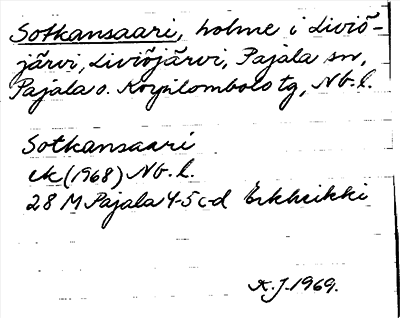 Sotkansaari, holme i Liviö-
järvi, Liviöjärvi, Pajala sn,
Pajala o. Korpilombolo tg, Nb. l.
Sotkansaari
ek (1968) Nb. l.
28 M Pajala 4-5 c-d Erkheikki
K.J. 1969.